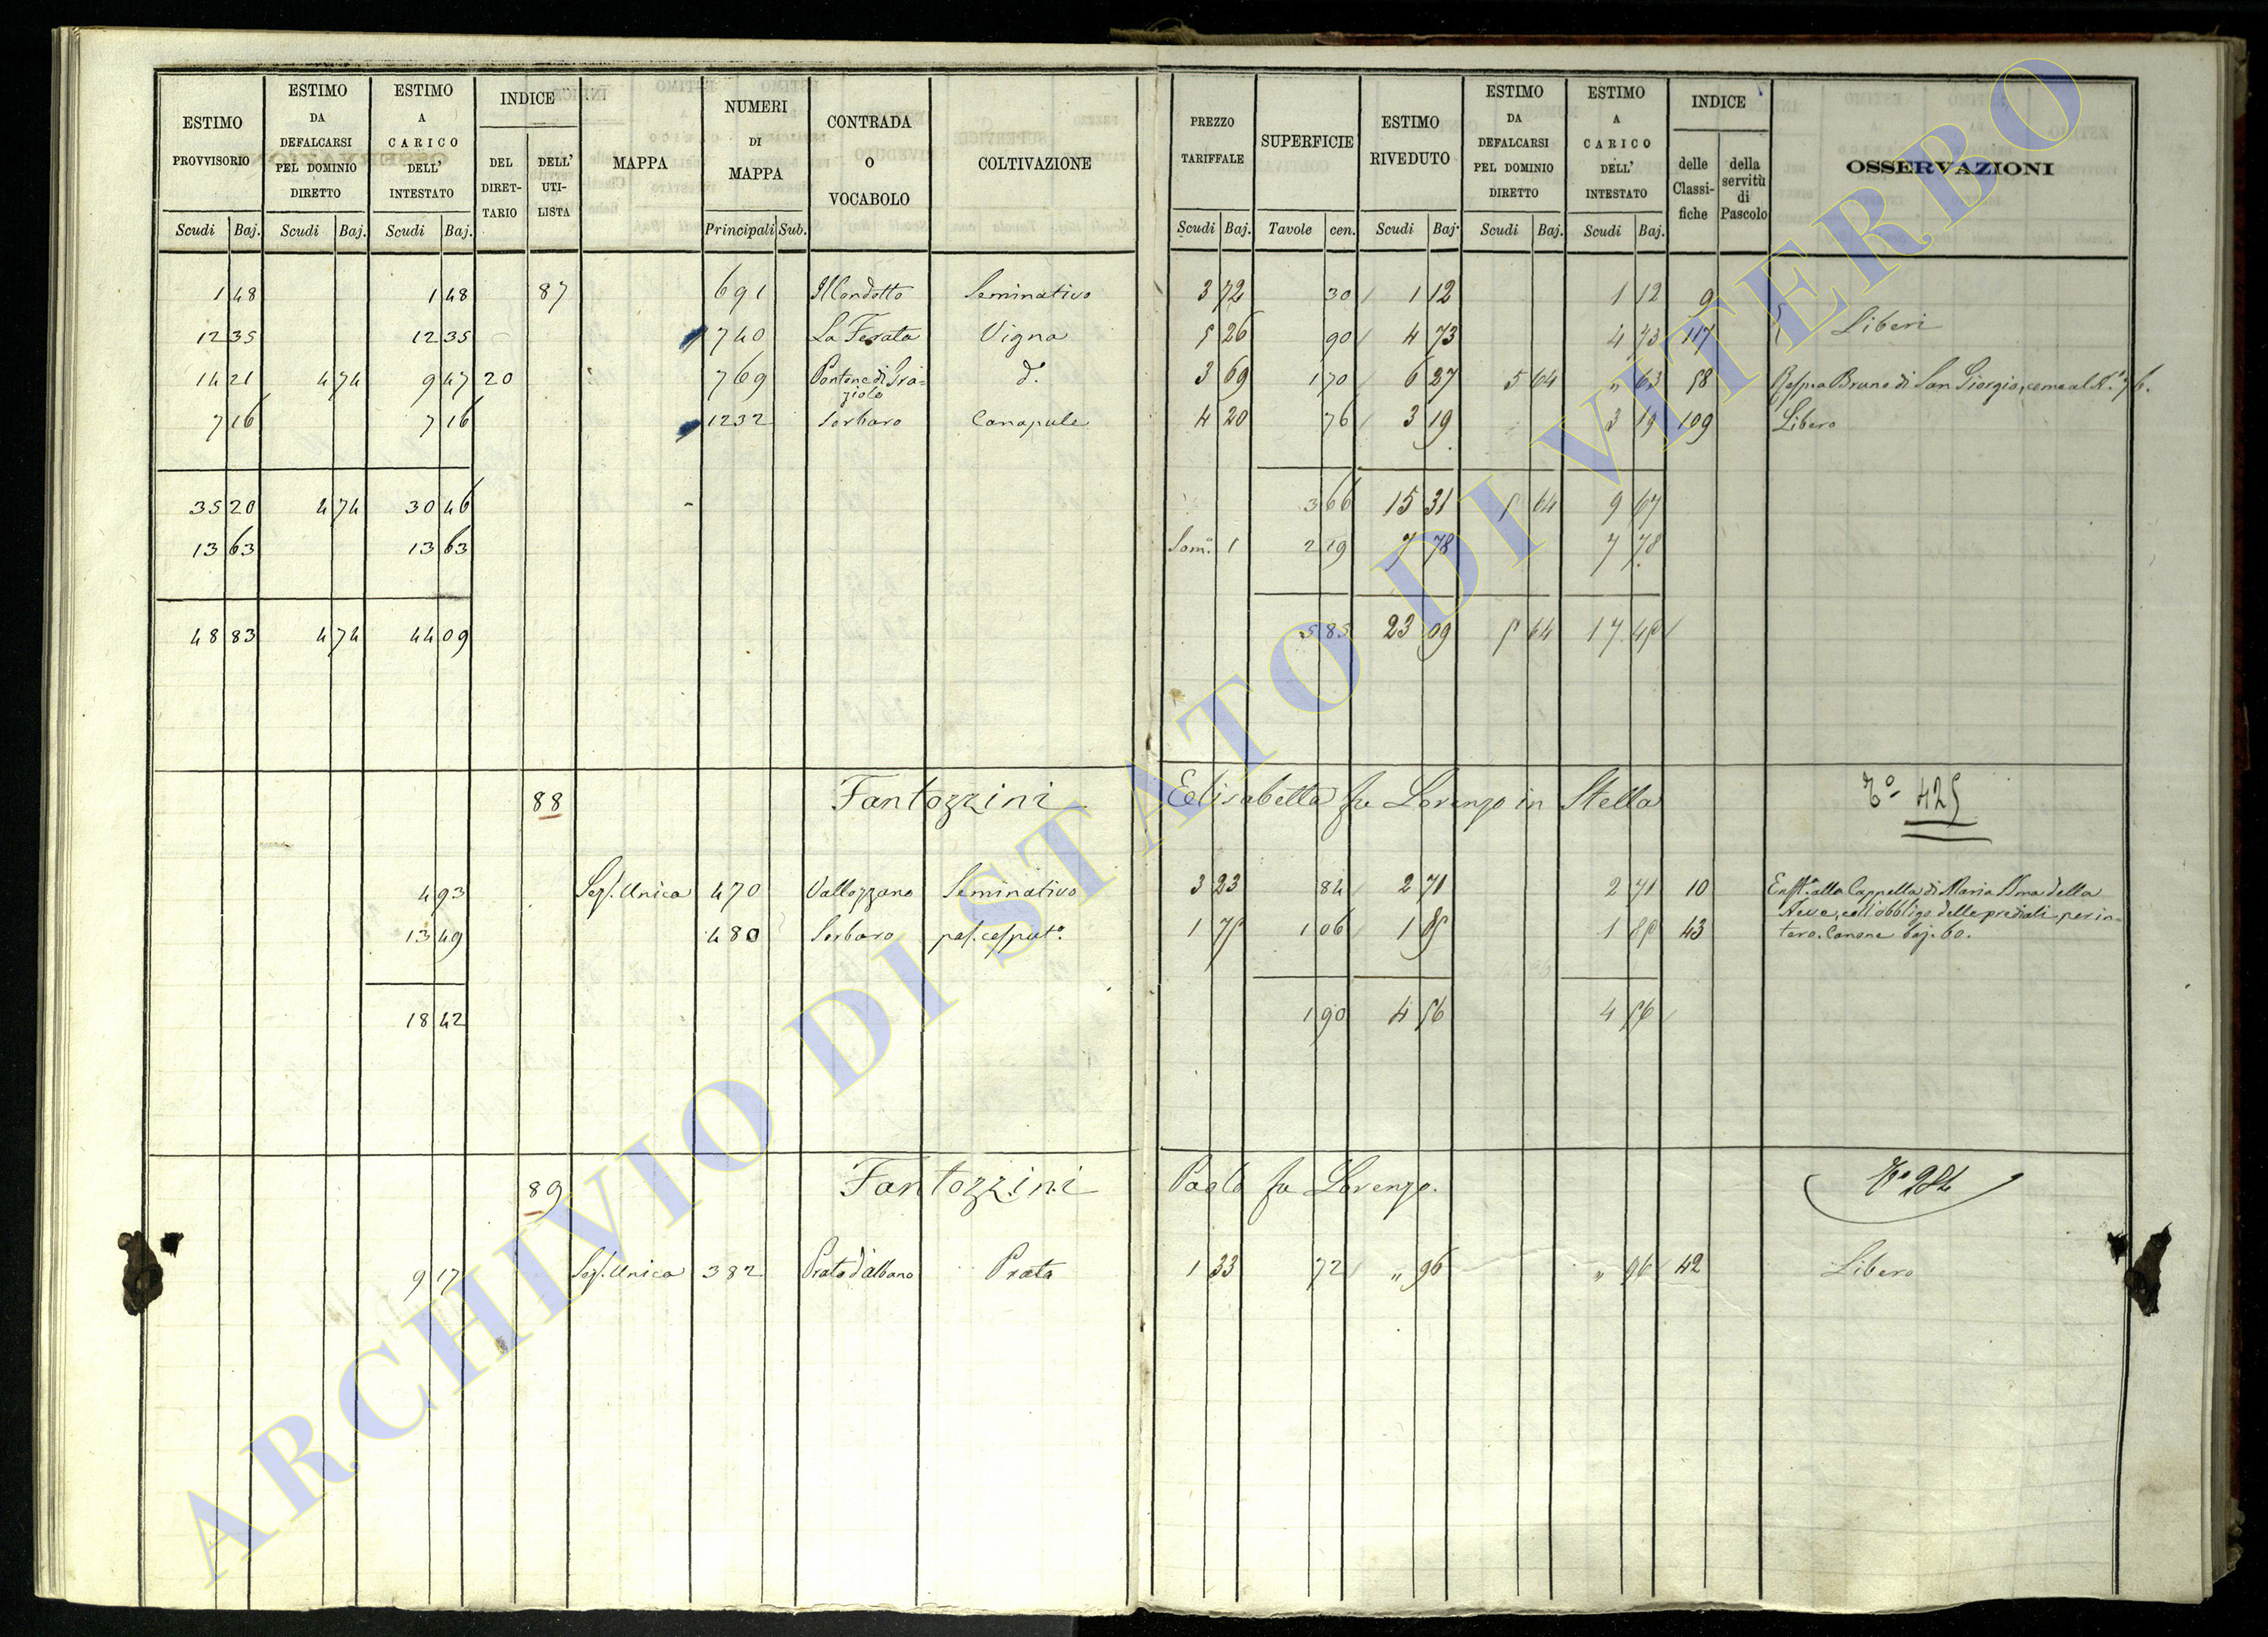 ESTIMO PROVVISORIO | ESTIMO DA DEFALCARSI PEL DOMINIO DIRETTO | ESTIMO A CARICO DELL' INTESTATO | INDICE DEL DIRET-TARIO | DELL' UTI-LISTA | MAPPA | NUMERI DI MAPPA | CONTRADA O VOCABOLO | COLTIVAZIONE | PREZZO TARIFFALE | SUPERFICIE | ESTIMO RIVEDUTO | ESTIMO DA DEFALCARSI PEL DOMINIO DIRETTO | ESTIMO A CARICO DELL' INTESTATO | INDICE delle Classi-fiche | della servitù di Pascolo | OSSERVAZIONI
Scudi Baj. Scudi Baj. Scudi Baj. Principali Sub. Scudi Baj. Tavole cen. Scudi Baj. Scudi Baj. Scudi Baj.
1 48 1 48 87 691 Il Condotto Seminativo 3 72 30 1 12 1 12 9
12 35 12 35 740 La Ferata Vigna 5 26 90 4 73 4 73 117 Liberi
14 21 4 74 9 47 20 769 Pantane di d. 3 69 1 70 6 27 5 64 " 63 58 Bruno di San Giorgio, come al N.° 76.
7 16 7 16 1232 Sorbaro Canapule 4 20 76 3 19 3 19 109 Libero
35 20 4 74 30 46 3 66 15 31 5 64 9 67
13 63 13 63 Som.a 1 2 19 7 78 7 78
48 83 4 74 44 09 5 85 23 09 5 64 17 45
88 Fantozzini Elisabetta fu Lorenzo in Stella 425
4 93 Sez. Unica 470 Vallozzano Seminativo 3 23 84 2 71 2 71 10 Enft.a alla Cappella di Maria SSma della
Neve, coll'obbligo delle prediali per in=
13 49 480 Sorbaro pas. cesput.o 1 75 1 06 1 85 1 85 43 tero. Canone baj. 60.
18 42 1 90 4 56 4 56
89 Fantozzini Paolo fu Lorenzo. 284
9 17 Sez. Unica 382 Prato d'albano Prato 1 33 72 " 96 " 96 42 Libero
ARCHIVIO DI STATO DI VITERBO